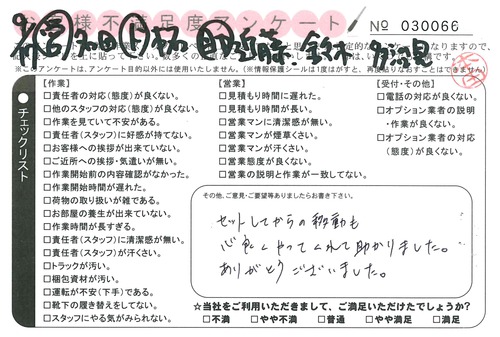 お客様不満足度アンケート
No 030066
※このアンケートは、アンケート目的以外には使用いたしません。(※情報保護シールは1度がすと、再度貼りなおすことはできません)
チェックリスト
【作業】
□責任者の対応(態度)が良くない。
□他のスタッフの対応(態度)が良くない。
□作業を見ていて不安がある。
□責任者(スタッフ)に好感が持てない。
□お客様への挨拶が出来ていない。
□ご近所への挨拶・気遣いが無い。
□作業開始前の内容確認がなかった。
□作業開始時間が遅れた。
□荷物の取り扱いが雑である。
□お部屋の養生が出来ていない。
□作業時間が長すぎる。
□責任者(スタッフ)に清潔感が無い。
□責任者(スタッフ)が汗くさい。
□トラックが汚い。
□梱包資材が汚い。
□運転が不安(下手)である。
□靴下の履き替えをしてない。
□スタッフにやる気がみられない。
【営業】
□見積もり時間に遅れた。
□見積もり時間が長い。
□営業マンに清潔感が無い。
□営業マンが煙草くさい。
□営業マンが汗くさい。
□営業態度が良くない。
□営業の説明と作業が一致してない。
【受付・その他】
□電話の対応が良くない。
□オプション業者の説明・作業が良くない。
□オプション業者の対応(態度)が良くない。
その他、ご意見・ご要望等ありましたらお書き下さい。
セットしてからの移動も
心良くやってくれて助かりました。
ありがとうございました。
☆当社をご利用いただきまして、ご満足いただけたでしょうか?
□不満 □やや不満 □普通 □やや満足 □満足